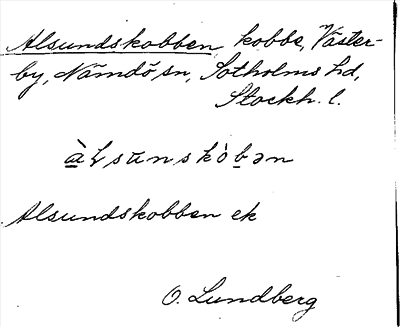 Alsundskobben, kobbe, Väster-
by, Nämdö sn, Sotholms hd,
Stockh. l.
Alsundskobben ek
O. Lundberg